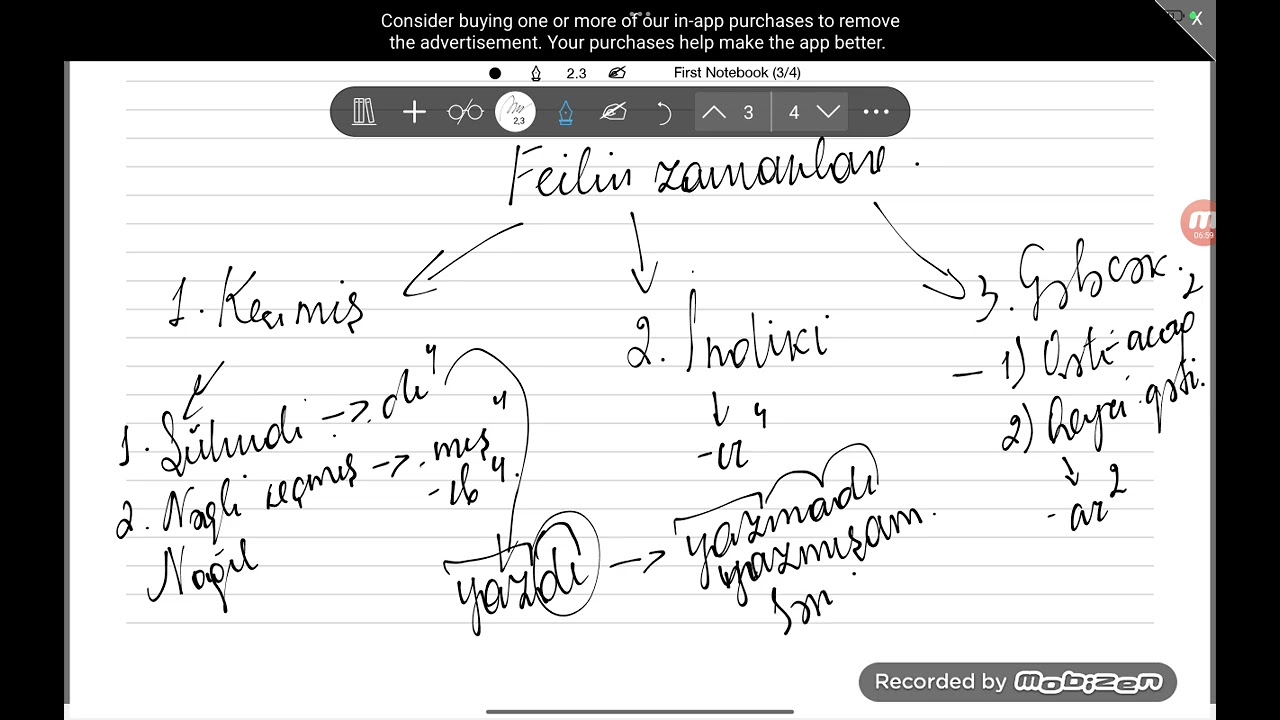 Consider buying one or more of our in-app purchases to remove
the advertisement. Your purchases help make the app better.
X
2.3 First Notebook (3/4)
2,3 3 4
Feilin zamanları.
06:59
1. Keçmiş
2. İndiki
3. Gələcək.
1. Şühudi -> dı⁴
2. Nəqli keçmiş -> mış⁴
-ıb⁴.
Nağıl
-ır⁴
- 1) Qəti-acaq²
2) Qeyri-qəti.
-ar²
yazdı -> yazmadı
yazmışam.
Recorded by mobizen